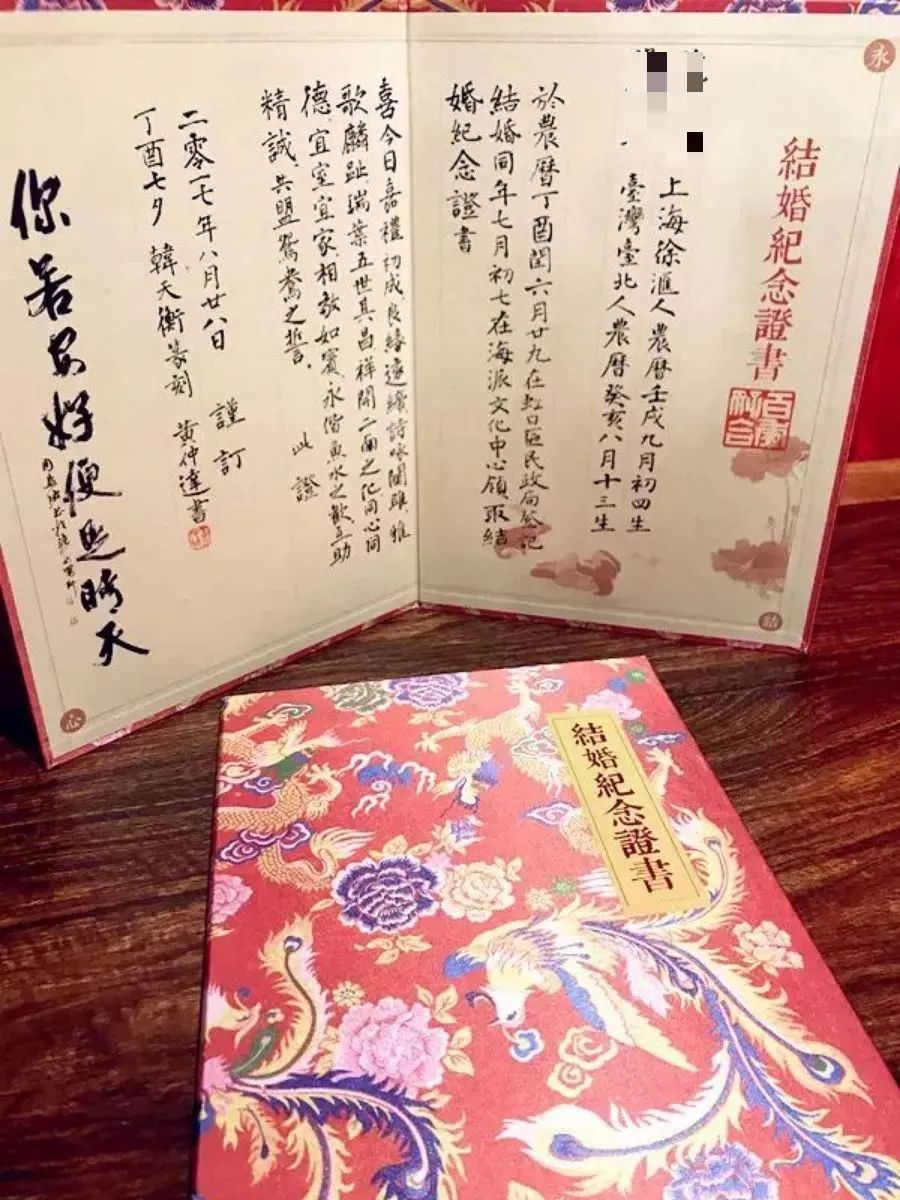 結婚紀念證書
上海徐滙人農曆壬戌九月初四生
臺灣臺北人農曆癸亥八月十三生
於農曆丁酉閏六月廿九在虹口區民政局登記
結婚同年七月初七在海派文化中心領取結
婚紀念證書
喜今日嘉禮初成良緣遂締詩咏關雎雅
歌麟趾瑞葉五世其昌祥開二南之化同心同
德宜室宜家相敬如賓永偕魚水之歡互助
精誠共盟鴛鴦之誓
此證
二零一七年八月廿八日
謹訂
丁酉七夕 韓天衡篆刻 黃仲達書
你若安好便是晴天
永
結
心
結婚紀念證書